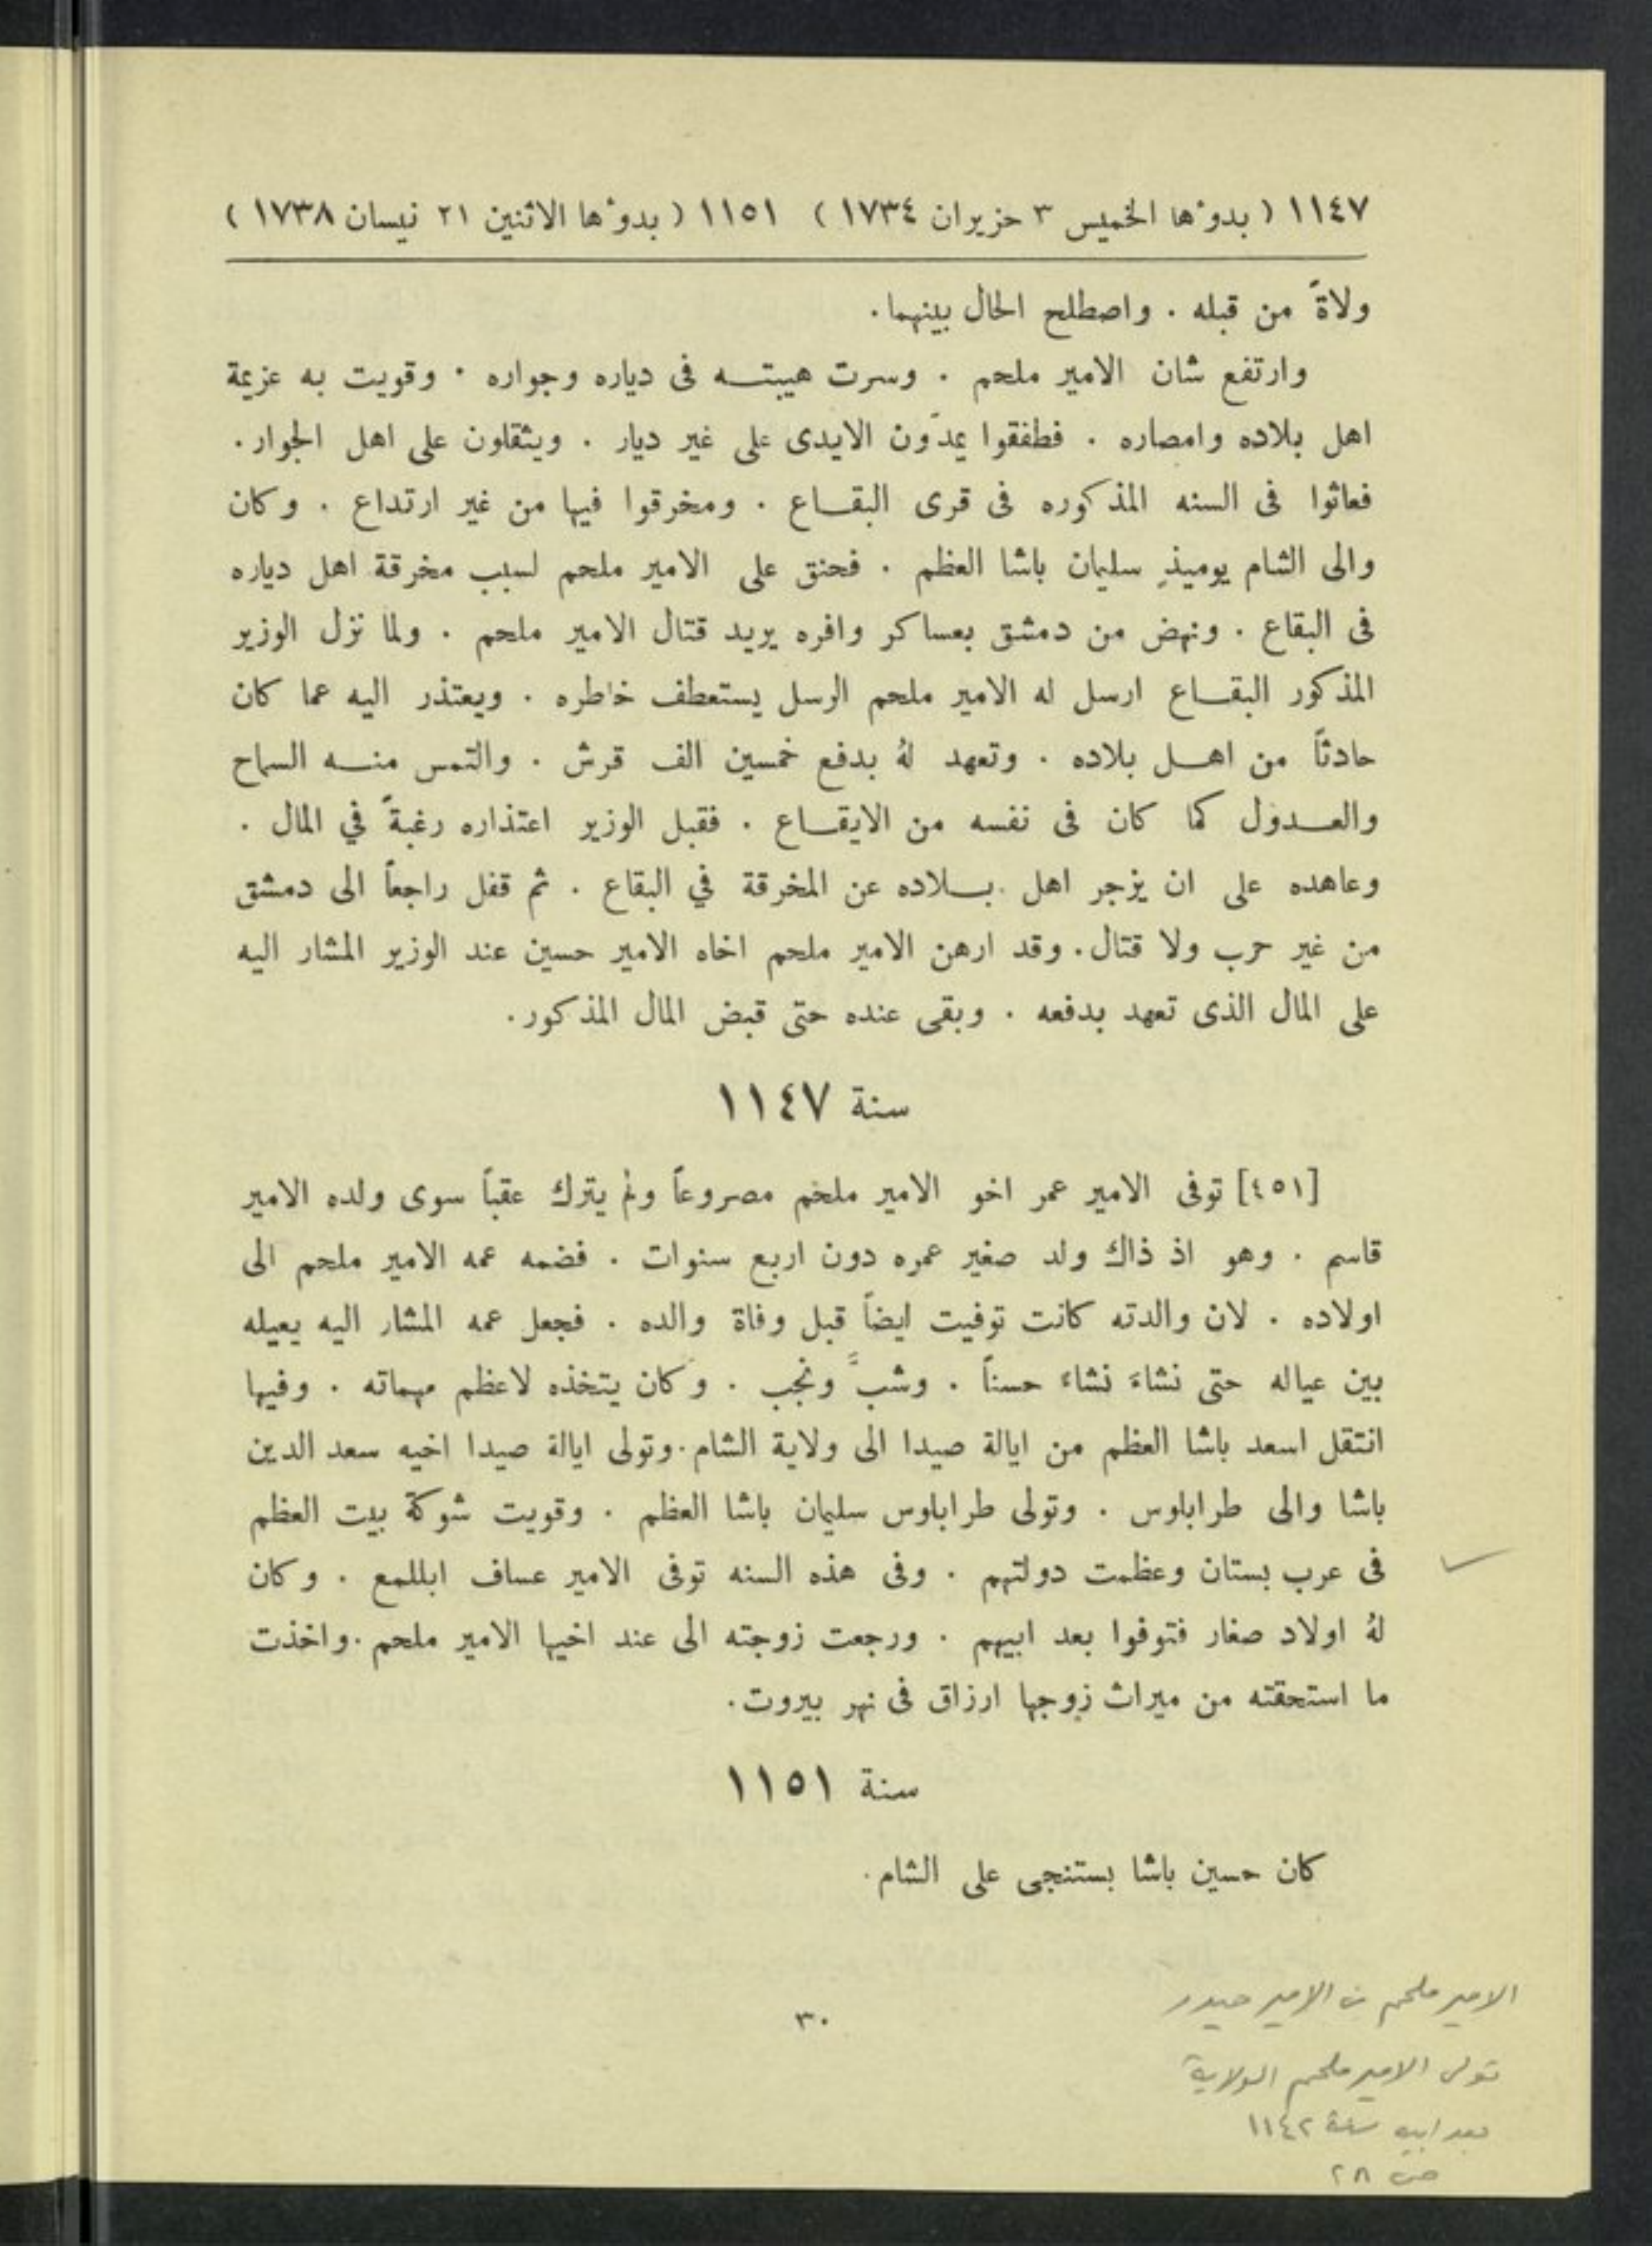 ١١٤٧ ( بدوٴها الخميس ٣ حزيران ١٧٣٤ ) ١١٥١ ( بدوٴها الاثنين ٢١ نيسان ١٧٣٨ )
ولاةً من قبله . واصطلح الحال بينهما .
وارتفع شان الامير ملحم . وسرت هيبتـه فى دياره وجواره . وقويت به عزيمة
اهل بلاده وامصاره . فطفقوا يمدّون الايدى على غير ديار . ويثقلون على اهل الجوار .
فعاثوا فى السنه المذكوره فى قرى البقـاع . ومخرقوا فيها من غير ارتداع . وكان
والى الشام يوميذٍ سليمان باشا العظم . فحنق على الامير ملحم لسبب مخرقة اهل دياره
فى البقاع . ونهض من دمشق بعساكر وافره يريد قتال الامير ملحم . ولما نزل الوزير
المذكور البقـاع ارسل له الامير ملحم الرسل يستعطف خاطره . ويعتذر اليه عما كان
حادثاً من اهـل بلاده . وتعهد لهُ بدفع خمسين الف قرش . والتمس منـه السماح
والعـدول كما كان فى نفسه من الايقـاع . فقبل الوزير اعتذاره رغبةً في المال .
وعاهده على ان يزجر اهل بـلاده عن المخرقة في البقاع . ثم قفل راجعاً الى دمشق
من غير حرب ولا قتال . وقد ارهن الامير ملحم اخاه الامير حسين عند الوزير المشار اليه
على المال الذى تعهد بدفعه . وبقى عنده حتى قبض المال المذكور .
سنة ١١٤٧
[٤٥١] توفى الامير عمر اخو الامير ملحم مصروعاً ولم يترك عقباً سوى ولده الامير
قاسم . وهو اذ ذاك ولد صغير عمره دون اربع سنوات . فضمه عمه الامير ملحم الى
اولاده . لان والدته كانت توفيت ايضاً قبل وفاة والده . فجعل عمه المشار اليه يعيله
بين عياله حتى نشاءَ نشاءً حسناً . وشبَّ ونجب . وكان يتخذه لاعظم مهماته . وفيها
انتقل اسعد باشا العظم من ايالة صيدا الى ولاية الشام . وتولى ايالة صيدا اخيه سعد الدين
باشا والى طرابلوس . وتولى طرابلوس سليمان باشا العظم . وقويت شوكة بيت العظم
فى عرب بستان وعظمت دولتهم . وفى هذه السنه توفى الامير عساف ابللمع . وكان
لهُ اولاد صغار فتوفوا بعد ابيهم . ورجعت زوجته الى عند اخيها الامير ملحم . واخذت
ما استحقته من ميراث زوجها ارزاق فى نهر بيروت .
سنة ١١٥١
كان حسين باشا بستنجى على الشام .
الامير ملحم بن الامير حيدر
٣٠
تولى الامير ملحم الولاية
بعد ابيه سنة ١١٤٢
ص ٢٨